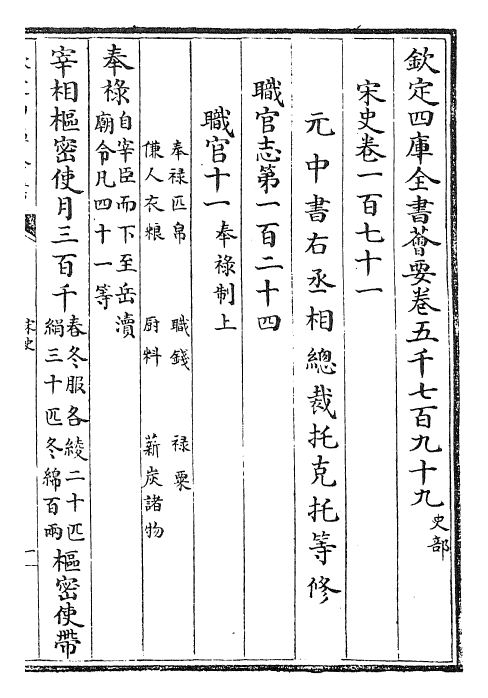 欽定四庫全書薈要卷五千七百九十九 史部
宋史卷一百七十一
元中書右丞相總裁托克托等修
職官志第一百二十四
職官十一 奉禄制上
奉禄匹帛 職錢 禄粟
傔人衣粮 厨料 薪炭諸物
奉禄 自宰臣而下至岳瀆
廟令凡四十一等
宰相樞密使月三百千 春冬服各綾二十匹
絹三十匹冬綿百兩 樞密使帶
宋史